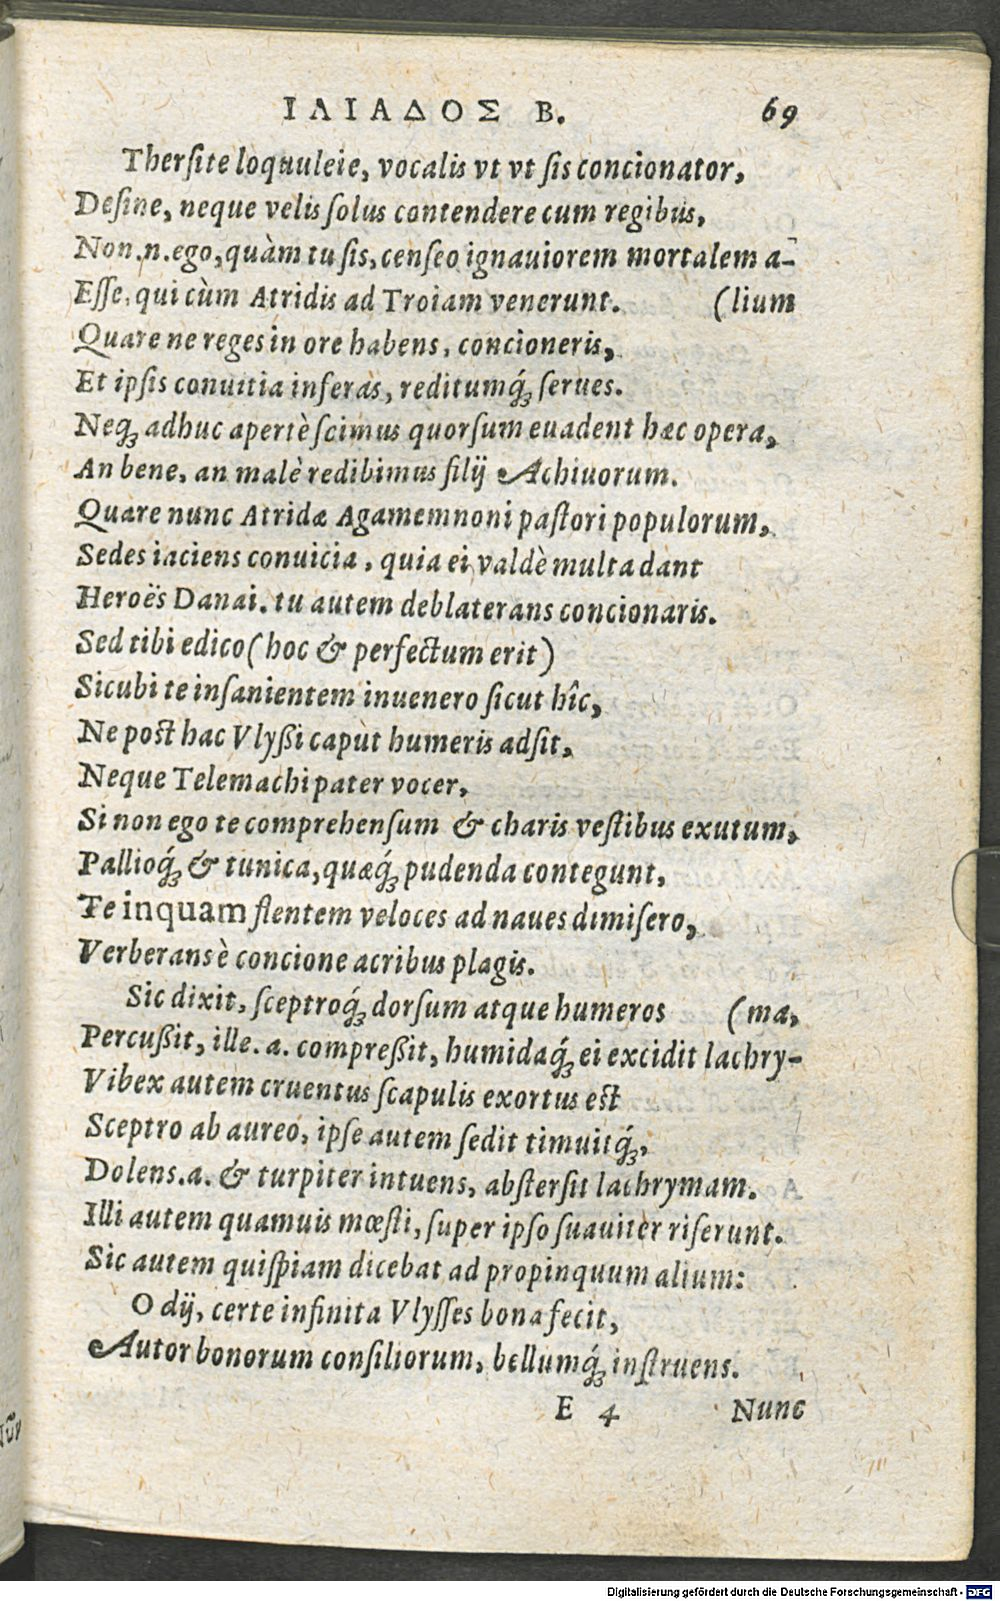 ΙΛΙΑΔΟΣ Β. 69
Therſite loquuleie, vocalis vt vt ſis concionator,
Deſine, neque velis ſolus contendere cum regibus,
Non.n.ego,quàm tu ſis,cenſeo ignauiorem mortalem a-
Eſſe, qui cùm Atridis ad Troiam venerunt. (lium
Quare ne reges in ore habens, concioneris,
Et ipſis conuitia inferas, reditumq́ꝫ ſerues.
Neqꝫ adhuc apertè ſcimus quorſum euadent hæc opera,
An bene, an malè redibimus filij Achiuorum.
Quare nunc Atridæ Agamemnoni paſtori populorum,
Sedes iaciens conuicia, quia ei valdè multa dant
Heroës Danai. tu autem deblaterans concionaris.
Sed tibi edico (hoc & perfectum erit)
Sicubi te inſanientem inuenero ſicut hîc,
Ne poſt hac Vlyßi caput humeris adſit,
Neque Telemachi pater vocer,
Si non ego te comprehenſum & charis veſtibus exutum,
Pallioq́ꝫ & tunica, quæq́ꝫ pudenda contegunt,
Te inquam flentem veloces ad naues dimiſero,
Verberans è concione acribus plagis.
Sic dixit, ſceptroq́ꝫ dorſum atque humeros (ma,
Percußit, ille.a. compreßit, humidaq́ꝫ ei excidit lachry-
Vibex autem cruentus ſcapulis exortus eſt
Sceptro ab aureo, ipſe autem ſedit timuitq́ꝫ,
Dolens.a. & turpiter intuens, abſterſit lachrymam.
Illi autem quamuis mœſti, ſuper ipſo ſuauiter riſerunt.
Sic autem quiſpiam dicebat ad propinquum alium:
O dij, certe infinita Vlyſſes bona fecit,
Autor bonorum conſiliorum, bellumq́ꝫ inſtruens.
E 4 Nunc
Digitalisierung gefördert durch die Deutsche Forschungsgemeinschaft - DFG